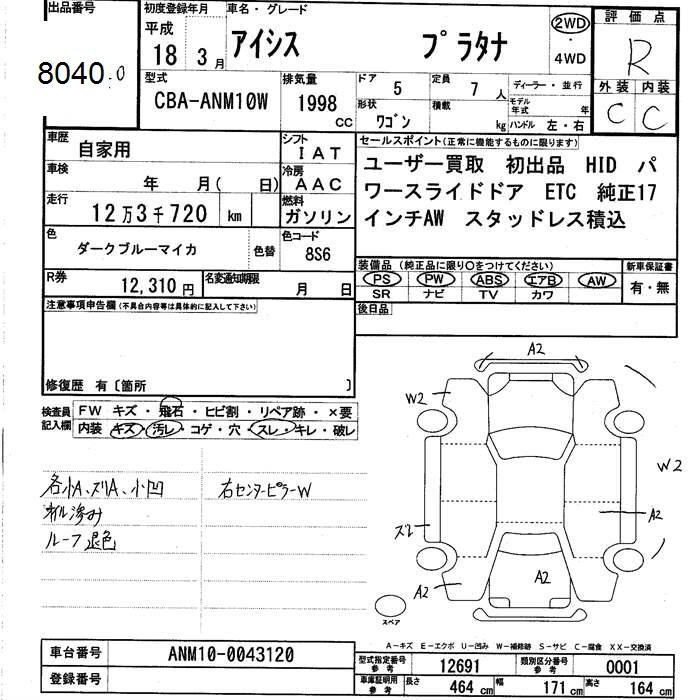 出品番号
8040.0
初度登録年月
平成
18年3月
車名・グレード
アイシス プラタナ
2WD
・
4WD
評価点
R
外装 内装
C C
型式
CBA-ANM10W
排気量
1998
CC
ドア 5
定員 7人
ディーラー・並行
形状
ワゴン
積載
kg
モデル年式 年
ハンドル 左・右
車歴
自家用
シフト
IAT
車検
年 月( 日)
冷房
AAC
走行
12万3千720 km
燃料
ガソリン
色
ダークブルーマイカ
色替
色コード
8S6
R券
12,310円
名変通知期限
月 日
セールスポイント(正常に機能するものに限ります)
ユーザー買取 初出品 HID パ
ワースライドドア ETC 純正17
インチAW スタッドレス積込
装備品 (純正品に限り○をつけてください)
PS PW ABS エアB AW
SR ナビ TV カワ
新車保証書
有・無
後日品
注意事項申告欄(不具合内容等は具体的に記入して下さい)
修復歴 有〔箇所 〕
検査員
記入欄
FW キズ・飛石・ヒビ割・リペア跡・×要
内装 キズ・汚レ・コゲ・穴・スレ・キレ・破レ
各小A、スリA、小凹
オイル滲み
ルーフ退色
右センターピラーW
A2
W2
W2
A2
スレ
A2
A2
スペア
A−キズ E−エクボ U−凹み W−補修跡 S−サビ C−腐食 XX−交換済
車台番号
ANM10-0043120
登録番号
型式指定番号
参考
12691
類別区分番号
参考
0001
車庫証明用
参考
長さ 464 cm
幅 171 cm
高さ 164 cm